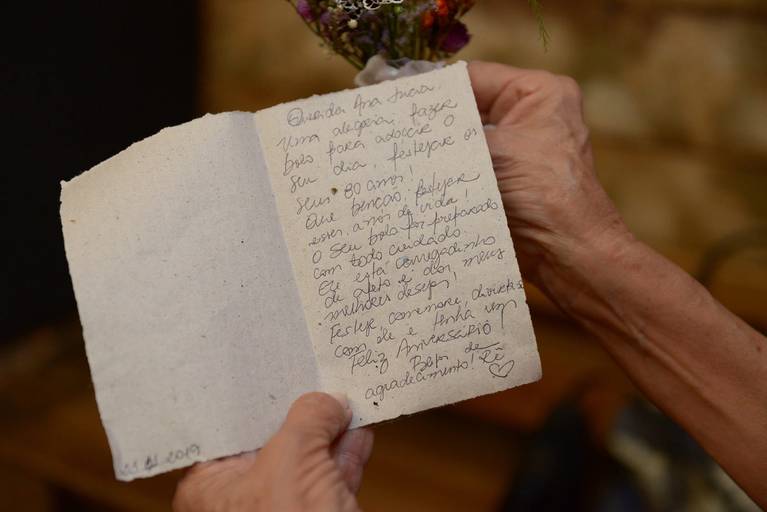 Querida Ana Lucia,
Uma alegria fazer
bolo para adoçar o
seu dia, festejar os
seus 80 anos!
Que benção festejar
esses anos de vida!
O seu bolo foi preparado
com todo cuidado.
Ele está carregadinho
de afeto e dos meus
melhores desejos,
Festeje, comemore, divirta-se
com ele e tenha um
Feliz Aniversário
de
agradecimento! Rê
2019